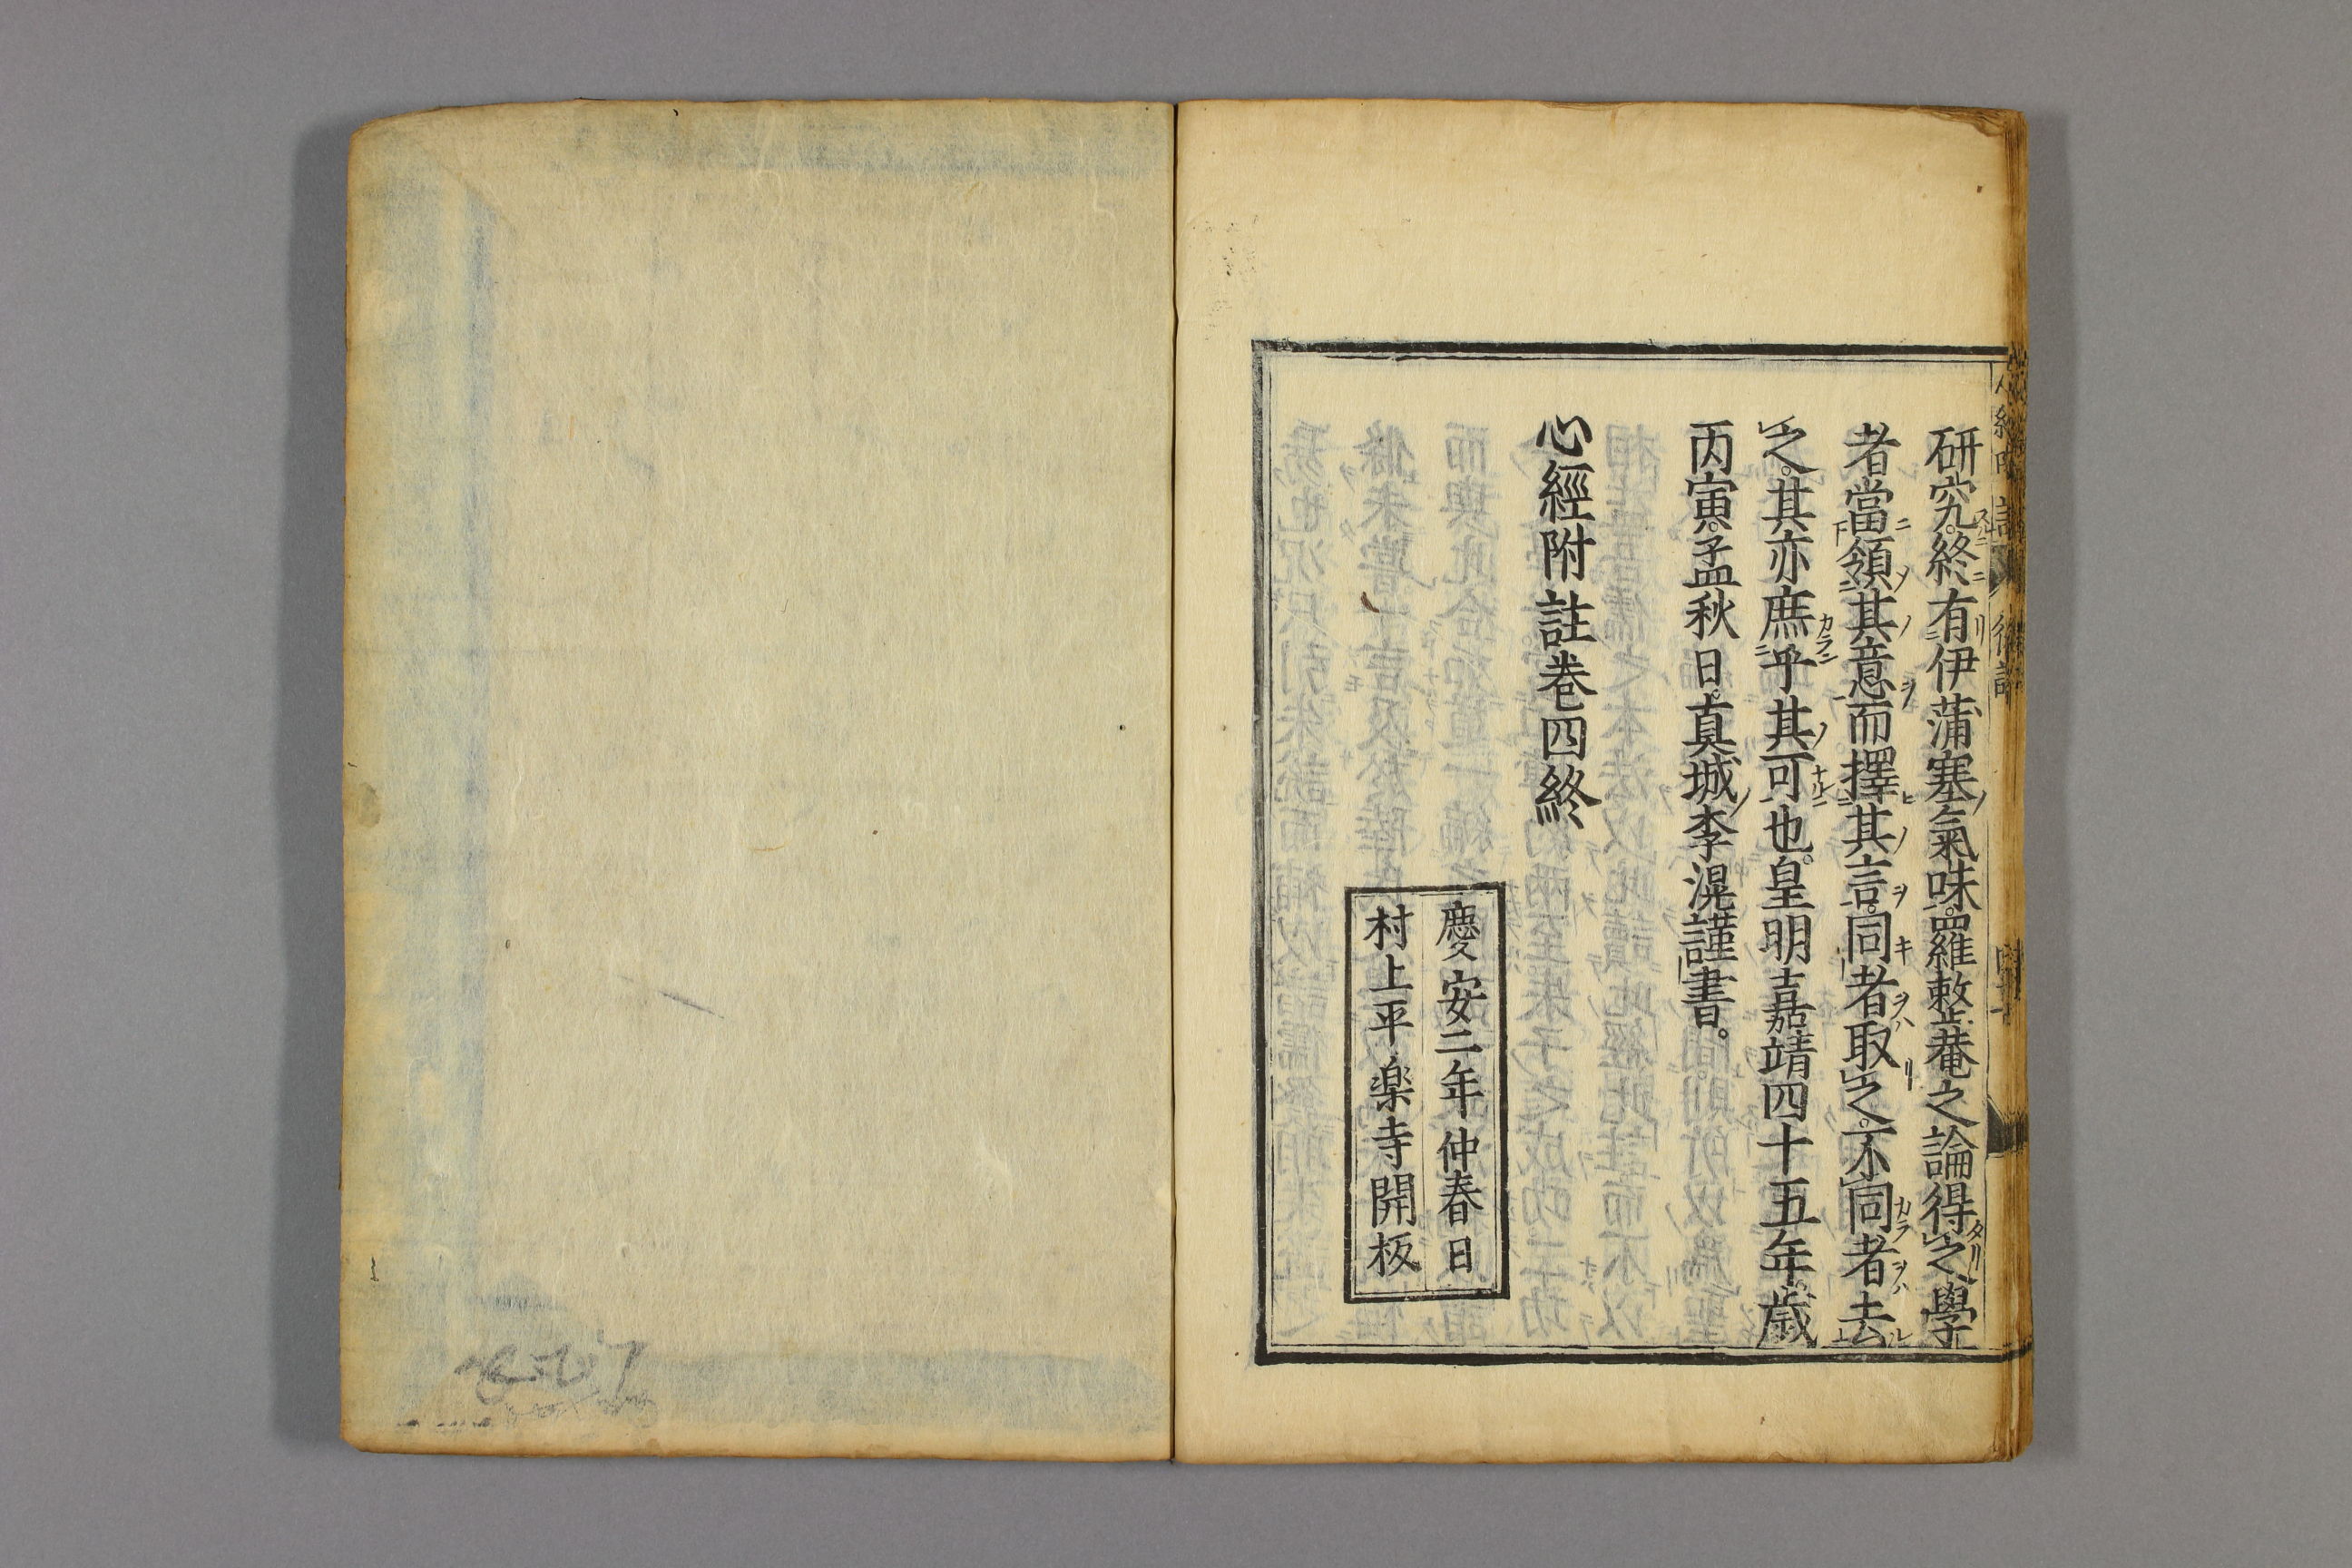 研究。終有伊蒲塞氣味。羅整菴之論得之。學
者當領其意而擇其言。同者取之。不同者去
之。其亦庶乎其可也。皇明嘉靖四十五年。歲
丙寅。孟秋日。真城李滉謹書。
心經附註卷四終
慶安二年仲春日
村上平楽寺開板